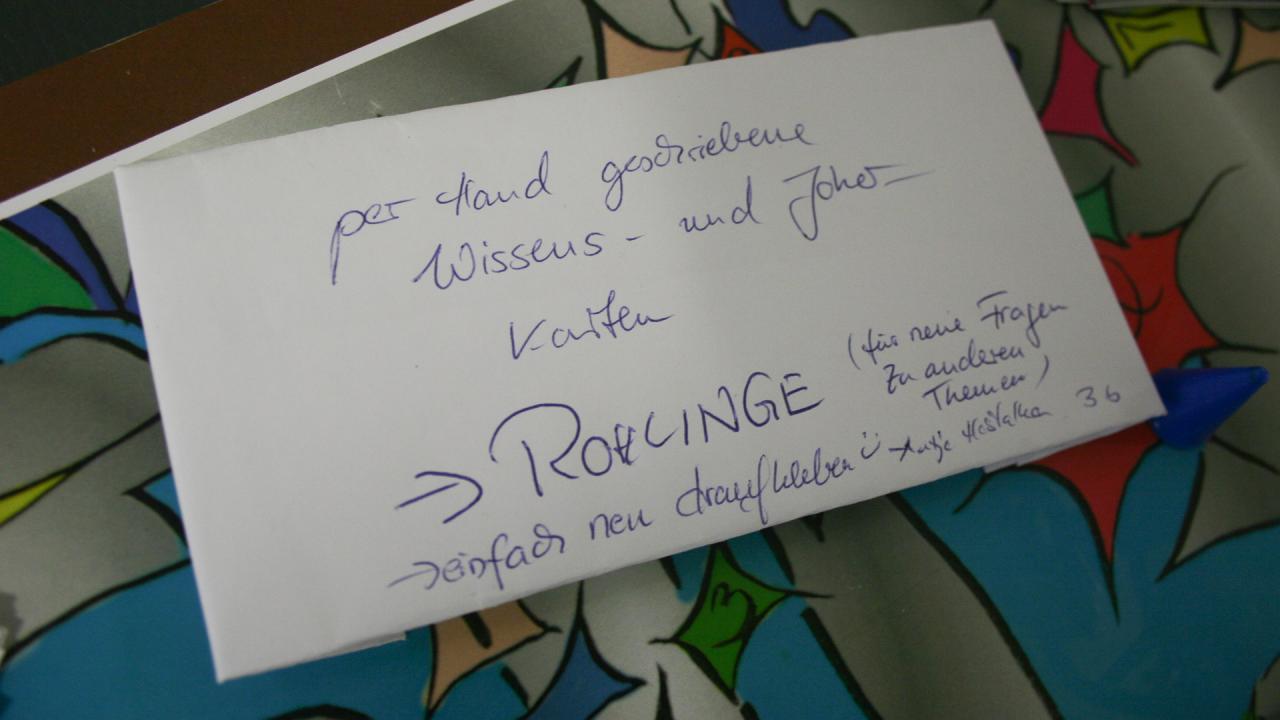 per Hand geschriebene
Wissens- und Joker-
Karten
→ ROHLINGE (für neue Fragen
zu anderen
Themen)
→ einfach neu draufkleben ü Antje 36